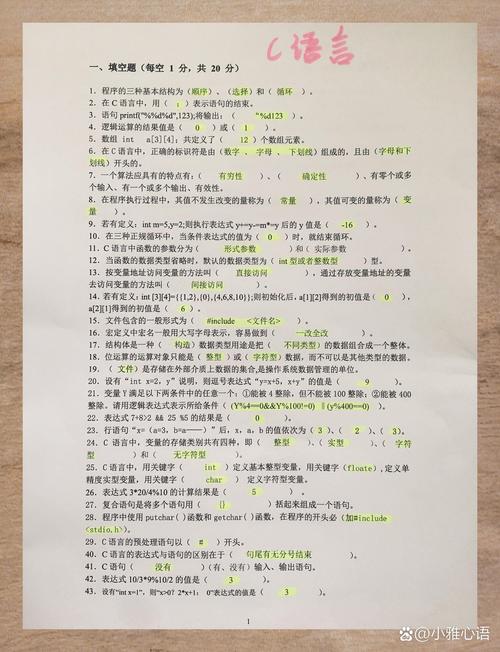 C语言
一、填空题（每空 1 分，共 20 分）
1．程序的三种基本结构为（顺序）、（选择）和（ 循环 ）。
2．在 C 语言中，用（ ; ）表示语句的结束。
3．语句 printf("%%d%d",123);将输出：（ "%d123 ）。
4．逻辑运算的结果值是（ 0 ）或（ 1 ）。
5．数组 int a[3][4]；共定义了（ 12 ）个数组元素。
6．在 C 语言中，正确的标识符是由（数字 、 字母 、 下划线）组成的，且由（字母和下
划线）开头的。
7．一个算法应具有的特点有：（ 有穷性 ）、（ 确定性 ）、有零个或多
个输入、有一个或多个输出、有效性。
8．在程序执行过程中，其值不发生改变的量称为（ 常量 ），其值可变的量称为（ 变
量 ）。
9．若有定义：int m=5,y=2;则执行表达式 y+=y-=m*=y 后的 y 值是（ -16 ）。
10．在三种正规循环中，当条件表达式的值为（ 0 ）时，就结束循环。
11．C 语言中函数的参数分为（ 形式参数 ）和（ 实际参数 ）。
12．当函数的数据类型省略时，默认的数据类型为（ int 型或者整数型 ）型。
13．按变量地址访问变量的方法叫（ 直接访问 ），通过存放变量地址的变量
去访问变量的方法叫（ 间接访问 ）。
14．若有定义：int [3][4]={{1,2},{0},{4,6,8,10}};则初始化后，a[1][2]得到的初值是（ 0 ），
a[2][1]得到的初值是（ 6 ）。
15．文件包含的一般形式为（ #include <文件名> ）。
16．宏定义中宏名一般用大写字母表示，容易做到（ 一改全改 ）。
17．结构体是一种（ 构造）数据类型用途是把（ 不同类型）的数据组合成一个整体。
18．位运算的运算对象只能是（ 整型 ）或（ 字符型）数据，而不可以是其他类型的数据。
19．（ 文件）是存储在外部介质上数据的集合,是操作系统数据管理的单位。
20．设有“int x=2, y”说明，则逗号表达式“y=x+5，x+y”的值是（ 9 ）。
21．变量 Y满足以下两条件中的任意一个：①能被 4 整除，但不能被 100 整除；②能被 400
整除。请用逻辑表达式表示所给条件（ (Y%4==0&&Y%100!=0)‖(y%400==0)）
22．表达式 7+8>2 && 25 %5 的结果是（ 0 ）。
23．行语句“x=（a=3，b=a--）”后，x，a，b 的值依次为（ 3 ）、（ 2 ）、（ 3 ）。
24．C 语言中，变量的存储类别共有四种，即（ 整型 ）、（ 实型 ）、（ 字符
型 ）和（ 无字符型 ）。
25．C 语言中，用关键字（ int ）定义基本整型变量，用关键字（floate),定义单
精度实型变量，用关键字（ char ）定义字符型变量。
26．表达式 3*20/4%10 的计算结果是（ 5 ）。
27．复合语句是将多个语句用（ {} ）括起来组成一个语句。
28．程序中使用 putchar()函数和 getchar()函数，在程序的开头必（加#include
<stdio.h>）
29．C 语言的预处理语句以（ # ）开头。
40．C 语言的表达式与语句的区别在于（ 句尾有无分号结束 ）。
41．C 语句（ 没有 ）（有、没有）输入、输出语句。
42．表达式 10/3*9%10/2 的值是（ 3 ）。
43．设有“int x=1”，则“x>0？2*x+1：0”表达式的值是（ 3 ）。
1
@小雅心语